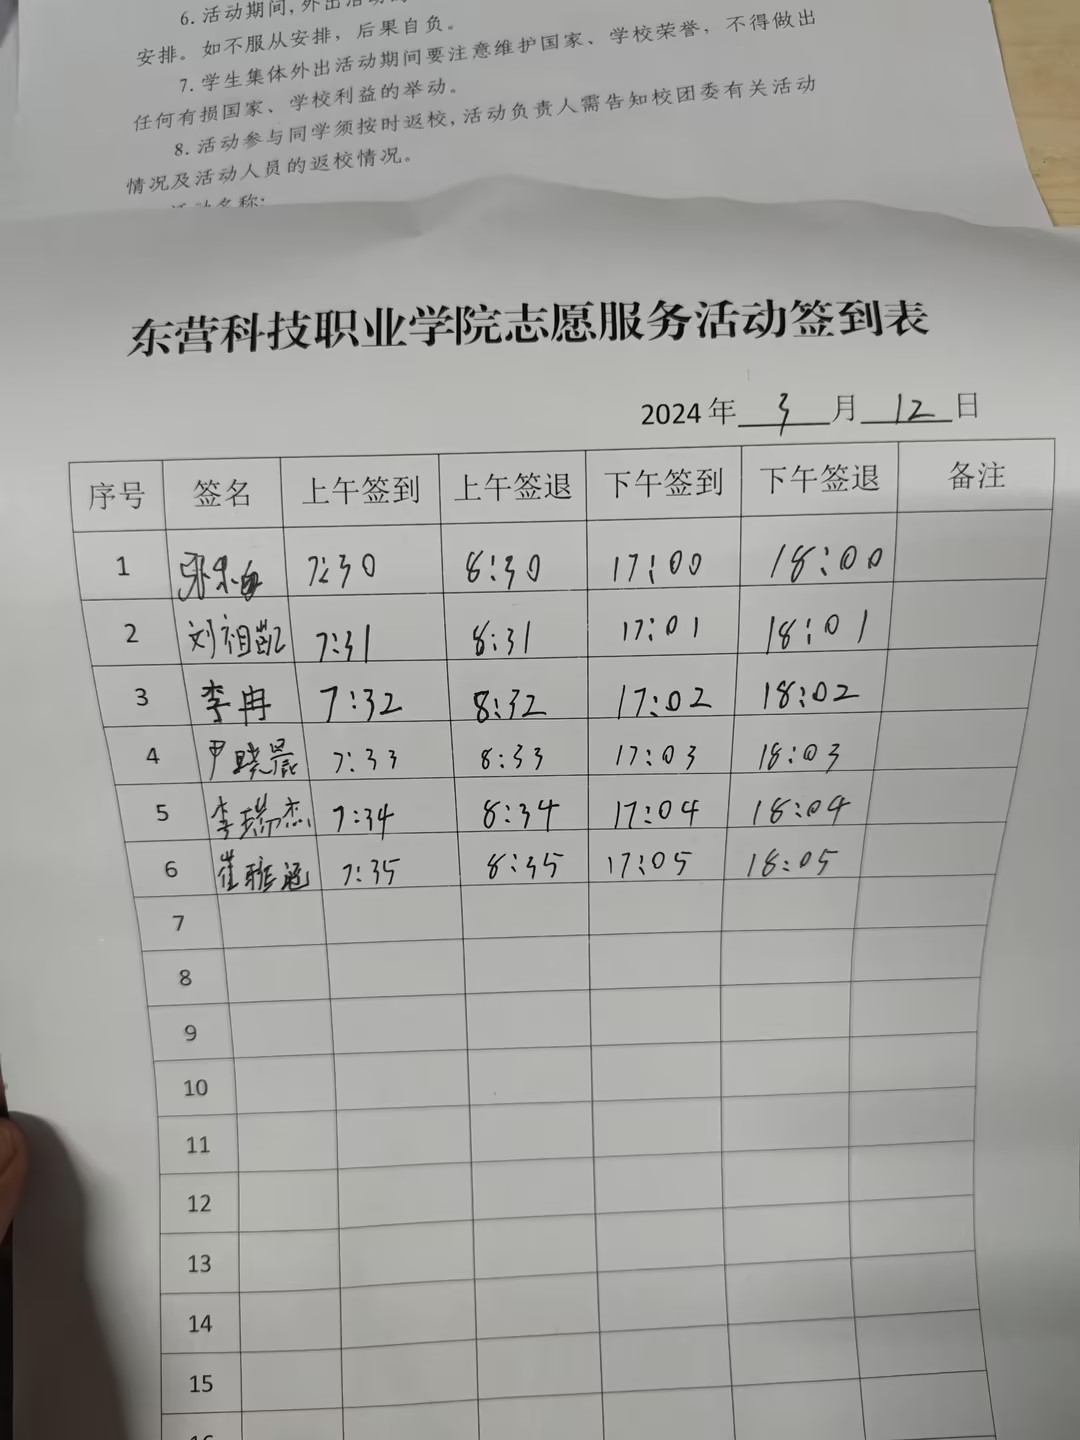 6. 活动期间, 外出活动
安排。如不服从安排，后果自负。
7. 学生集体外出活动期间要注意维护国家、学校荣誉，不得做出
任何有损国家、学校利益的举动。
8. 活动参与同学须按时返校, 活动负责人需告知校团委有关活动
情况及活动人员的返校情况。
活动名称:
东营科技职业学院志愿服务活动签到表
2024 年 3 月 12 日
序号 签名 上午签到 上午签退 下午签到 下午签退 备注
1 7:30 8:30 17:00 18:00
2 刘祖凯 7:31 8:31 17:01 18:01
3 李冉 7:32 8:32 17:02 18:02
4 尹晓晨 7:33 8:33 17:03 18:03
5 李瑞杰 7:34 8:34 17:04 18:04
6 崔雅涵 7:35 8:35 17:05 18:05
7
8
9
10
11
12
13
14
15
16